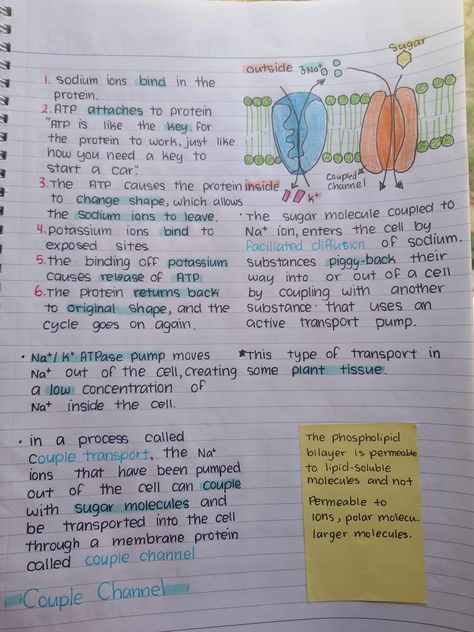 1. sodium ions bind in the
protein.
2. ATP attaches to protein
"ATP is like the key for
the protein to work, just like
how you need a key to
start a car."
3. The ATP causes the protein
to change shape, which allows
the sodium ions to leave.
4. potassium ions bind to
exposed sites
5. the binding off potassium
causes release of ATP
6. The protein returns back
to original shape, and the
cycle goes on again.
outside 3Na+
Sugar
inside
K+
Coupled
channel
• The sugar molecule coupled to
Na+ ion, enters the cell by
faciliated diffution of sodium.
substances piggy-back their
way into or out of a cell
by coupling with another
substance that uses an
active transport pump.
• Na+/K+ ATPase pump moves
Na+ out of the cell, creating
a low concentration of
Na+ inside the cell.
*This type of transport in
some plant tissue.
• in a process called
Couple transport, the Na+
ions that have been pumped
out of the cell can couple
with sugar molecules and
be transported into the cell
through a membrane protein
called couple channel
Couple Channel
The phospholipid
bilayer is permeable
to lipid-soluble
molecules and not
Permeable to
ions, polar molecu..
larger molecules.